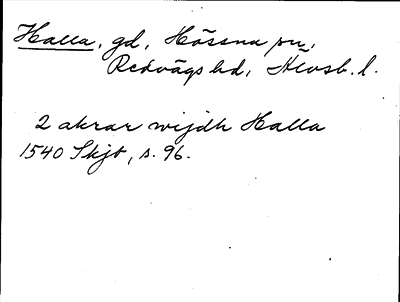 Halla, gd, Hössna sn,
Redvägs hd, Älvsb. l.
2 akrar wijdh Halla
1540 Skjb, s. 96.